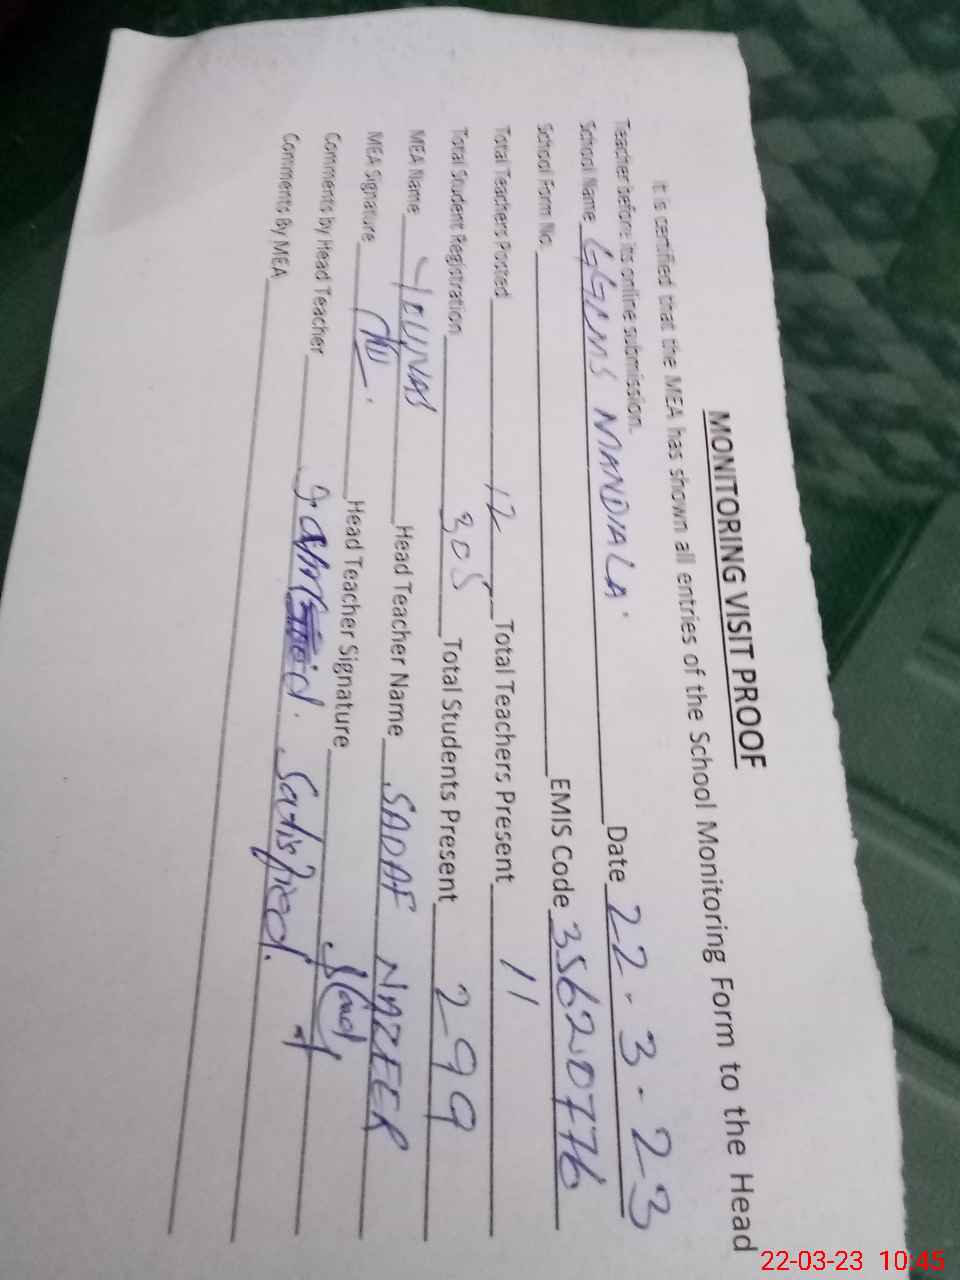 MONITORING VISIT PROOF
It is certified that the MEA has shown all entries of the School Monitoring Form to the Head
Teacher before its online submission.
School Name GGCMS MANDIALA Date 22-3-23
School Form No. EMIS Code 35620776
Total Teachers Posted 12 Total Teachers Present 11
Total Student Registration 305 Total Students Present 299
MEA Name YOUNAS Head Teacher Name SADAF NAZEER
MEA Signature Head Teacher Signature
Comments by Head Teacher Satisfied.
Comments By MEA
22-03-23 10:45